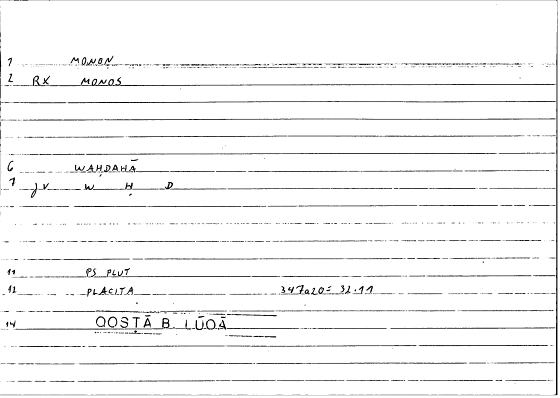 1 MONON
2 RX MONOS
6 WAḤDAHĀ
7 JV W Ḥ D
11 PS PLUT
12 PLACITA 347a20= 32.11
14 QOSṬĀ B. LŪQĀ